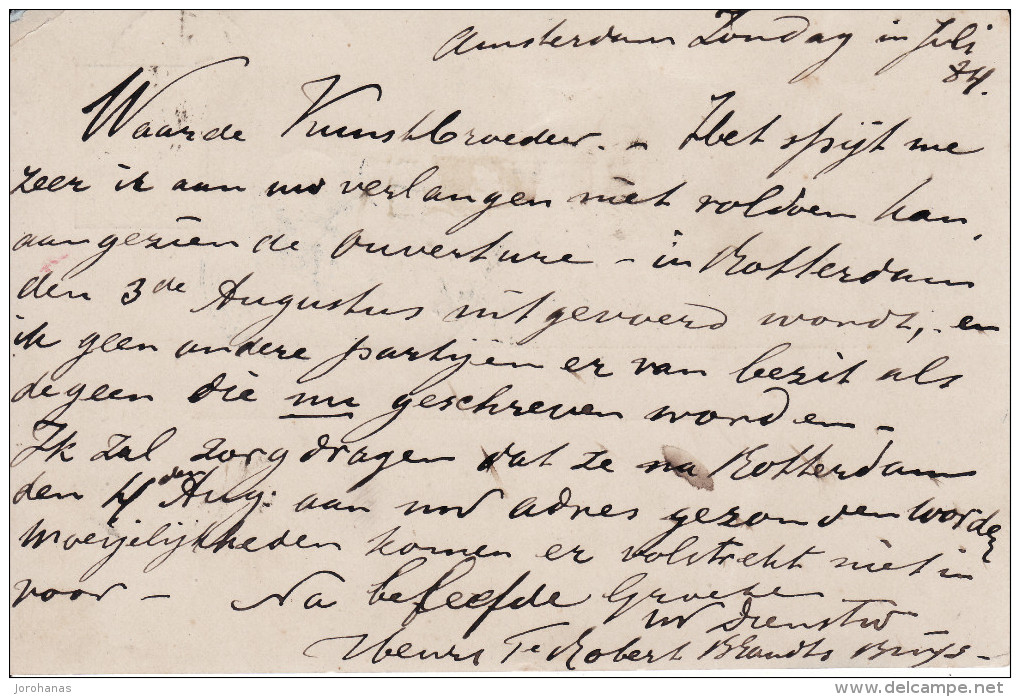 Amsterdam Zondag in Juli
84.
Waarde Kunstbroeder. - Het spijt me
zeer ik aan uw verlangen niet voldoen kan,
aangezien de ouverture - in Rotterdam
den 3de Augustus uitgevoerd wordt, en
ik geen andere partijen er van bezit als
degeen die nu geschreven worden -
Ik zal zorg dragen dat ze na Rotterdam
den 4den Aug: aan uw adres gezonden worden
Moeijelijkheden komen er volstrekt niet in
voor - Na beleefde Groeten
uw Dienstw
Robert Brandts Buys -
jorohanas
www.delcampe.net